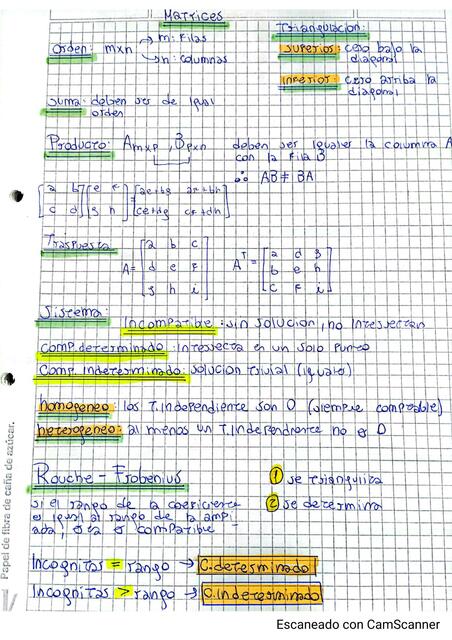 Matrices
Orden: mxn
m: Filas
n: columnas
Triangulación:
Superior: cero bajo la
diagonal
Inferior: cero arriba la
diagonal
Suma: deben ser de igual
orden
Producto: Amxp , Bpxn deben ser iguales la columna A
con la fila B
∴ AB≠BA
[a b] [e F] = [ae+bg aF+bh]
[c d] [g h] [ce+dg cF+dh]
Traspuesta
A= [a b c] Aᵀ= [a d g]
[d e F] [b e h]
[g h i] [c F i]
Sistema:
Incompatible: sin solución, no intersectan
Comp. determinado: intersecta en un solo punto
Comp. Indeterminado: solución trivial (iguales)
homogeneo: los T. independiente son 0 (siempre compatible)
heterogeneo: al menos un T. independiente no es 0
Rouche - Frobenius
Si el rango de la coeficiente
es igual al rango de la ampl
iada, esta es compatible
① se trianguliza
② se determina
Incognitas = rango → C. determinado
Incognitas > rango → C. Indeterminado
Papel de fibra de caña de azúcar.
Escaneado con CamScanner